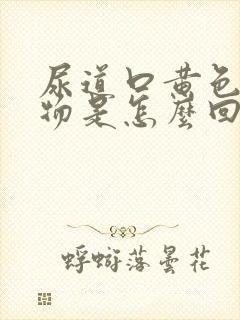 尿道口黄色
物是怎麼回
蜉蝣落曇花